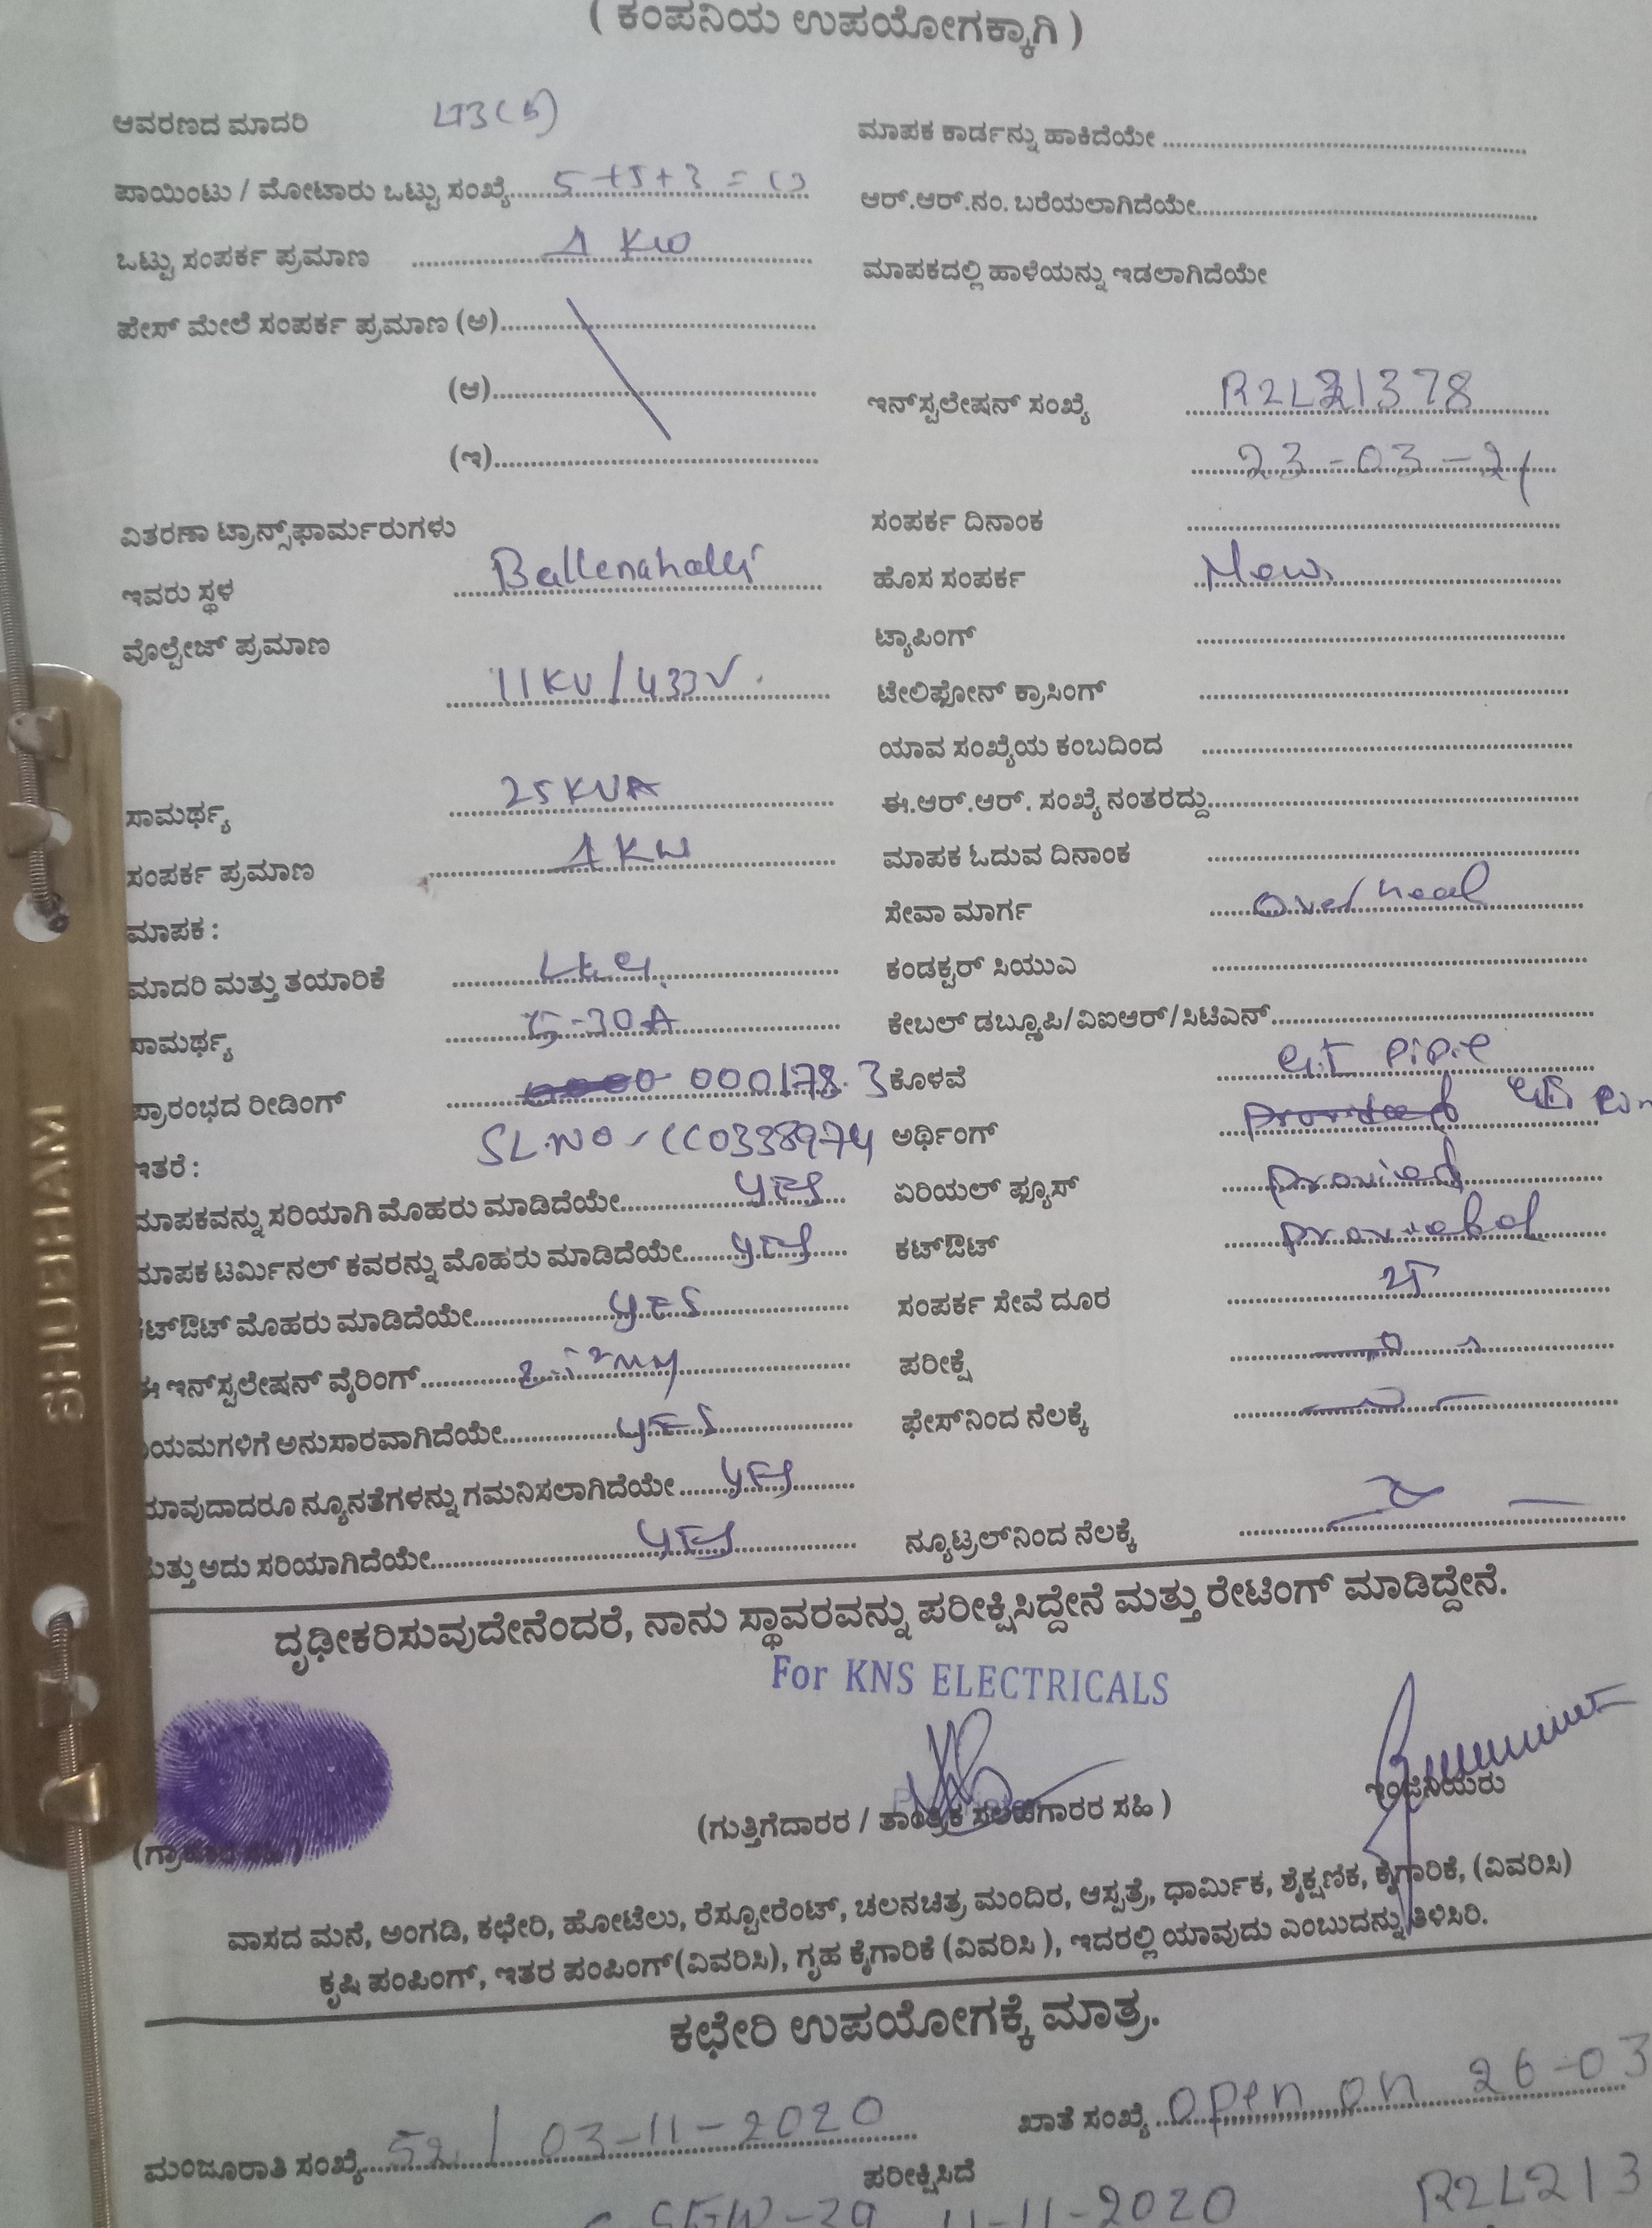 ( ಕಂಪನಿಯ ಉಪಯೋಗಕ್ಕಾಗಿ )
ಆವರಣದ ಮಾದರಿ LT3(b)
ಪಾಯಿಂಟು / ಮೋಟಾರು ಒಟ್ಟು ಸಂಖ್ಯೆ 5+5+3=
ಒಟ್ಟು ಸಂಪರ್ಕ ಪ್ರಮಾಣ 1 KW
ಫೇಸ್ ಮೇಲೆ ಸಂಪರ್ಕ ಪ್ರಮಾಣ (ಅ)
(ಆ)
(ಇ)
ವಿತರಣಾ ಟ್ರಾನ್ಸ್‌ಫಾರ್ಮರುಗಳು
ಇವರು ಸ್ಥಳ Ballenahalli
ವೊಲ್ಟೇಜ್ ಪ್ರಮಾಣ
11KV/433V.
ಸಾಮರ್ಥ್ಯ 25KVA
ಸಂಪರ್ಕ ಪ್ರಮಾಣ 1KW
ಮಾಪಕ :
ಮಾದರಿ ಮತ್ತು ತಯಾರಿಕೆ
ಸಾಮರ್ಥ್ಯ 5-30A
ಪ್ರಾರಂಭದ ರೀಡಿಂಗ್ 000178.3
SL.NO-CC0338974
ಇತರೆ :
ಮಾಪಕವನ್ನು ಸರಿಯಾಗಿ ಮೊಹರು ಮಾಡಿದೆಯೇ YES
ಮಾಪಕ ಟರ್ಮಿನಲ್ ಕವರನ್ನು ಮೊಹರು ಮಾಡಿದೆಯೇ YES
ಕಟ್‌ಔಟ್ ಮೊಹರು ಮಾಡಿದೆಯೇ YES
ಈ ಇನ್‌ಸ್ಟಲೇಷನ್ ವೈರಿಂಗ್
ಯಮಗಳಿಗೆ ಅನುಸಾರವಾಗಿದೆಯೇ YES
ಯಾವುದಾದರೂ ನ್ಯೂನತೆಗಳನ್ನು ಗಮನಿಸಲಾಗಿದೆಯೇ YES
ಮತ್ತು ಅದು ಸರಿಯಾಗಿದೆಯೇ YES
ಮಾಪಕ ಕಾರ್ಡನ್ನು ಹಾಕಿದೆಯೇ
ಆರ್.ಆರ್.ನಂ. ಬರೆಯಲಾಗಿದೆಯೇ
ಮಾಪಕದಲ್ಲಿ ಹಾಳೆಯನ್ನು ಇಡಲಾಗಿದೆಯೇ
ಇನ್‌ಸ್ಟಲೇಷನ್ ಸಂಖ್ಯೆ R2L21378
23-03-21
ಸಂಪರ್ಕ ದಿನಾಂಕ
ಹೊಸ ಸಂಪರ್ಕ New
ಟ್ಯಾಪಿಂಗ್
ಟೇಲಿಫೋನ್ ಕ್ರಾಸಿಂಗ್
ಯಾವ ಸಂಖ್ಯೆಯ ಕಂಬದಿಂದ
ಈ.ಆರ್.ಆರ್. ಸಂಖ್ಯೆ ನಂತರದ್ದು
ಮಾಪಕ ಓದುವ ದಿನಾಂಕ
ಸೇವಾ ಮಾರ್ಗ Over head
ಕಂಡಕ್ಟರ್ ಸಿಯುಎ
ಕೇಬಲ್ ಡಬ್ಲ್ಯೂಪಿ/ವಿಐಆರ್/ಸಿಟಿಎನ್
ಕೊಳವೆ G.I Pipe
ಅರ್ಥಿಂಗ್ GI
ಏರಿಯಲ್ ಫ್ಯೂಸ್ provied
ಕಟ್‌ಔಟ್
ಸಂಪರ್ಕ ಸೇವೆ ದೂರ
ಪರೀಕ್ಷೆ
ಫೇಸ್‌ನಿಂದ ನೆಲಕ್ಕೆ
ನ್ಯೂಟ್ರಲ್‌ನಿಂದ ನೆಲಕ್ಕೆ
ದೃಢೀಕರಿಸುವುದೇನೆಂದರೆ, ನಾನು ಸ್ಥಾವರವನ್ನು ಪರೀಕ್ಷಿಸಿದ್ದೇನೆ ಮತ್ತು ರೇಟಿಂಗ್ ಮಾಡಿದ್ದೇನೆ.
For KNS ELECTRICALS
(ಗುತ್ತಿಗೆದಾರರ / ತಾಂತ್ರಿಕ ಸಲಹೆಗಾರರ ಸಹಿ )
ಇಂಜಿನಿಯರು
ವಾಸದ ಮನೆ, ಅಂಗಡಿ, ಕಛೇರಿ, ಹೋಟೆಲು, ರೆಸ್ಟೋರೆಂಟ್, ಚಲನಚಿತ್ರ ಮಂದಿರ, ಆಸ್ಪತ್ರೆ, ಧಾರ್ಮಿಕ, ಶೈಕ್ಷಣಿಕ, ಕೈಗಾರಿಕೆ, (ವಿವರಿಸಿ)
ಕೃಷಿ ಪಂಪಿಂಗ್, ಇತರ ಪಂಪಿಂಗ್(ವಿವರಿಸಿ), ಗೃಹ ಕೈಗಾರಿಕೆ (ವಿವರಿಸಿ ), ಇದರಲ್ಲಿ ಯಾವುದು ಎಂಬುದನ್ನು ತಿಳಿಸಿರಿ.
ಕಛೇರಿ ಉಪಯೋಗಕ್ಕೆ ಮಾತ್ರ.
ಮಂಜೂರಾತಿ ಸಂಖ್ಯೆ 52 / 03-11-2020
ಖಾತೆ ಸಂಖ್ಯೆ open on 26-03
ಪರೀಕ್ಷಿಸಿದೆ
11-11-2020
R2L213
SHUBHAM